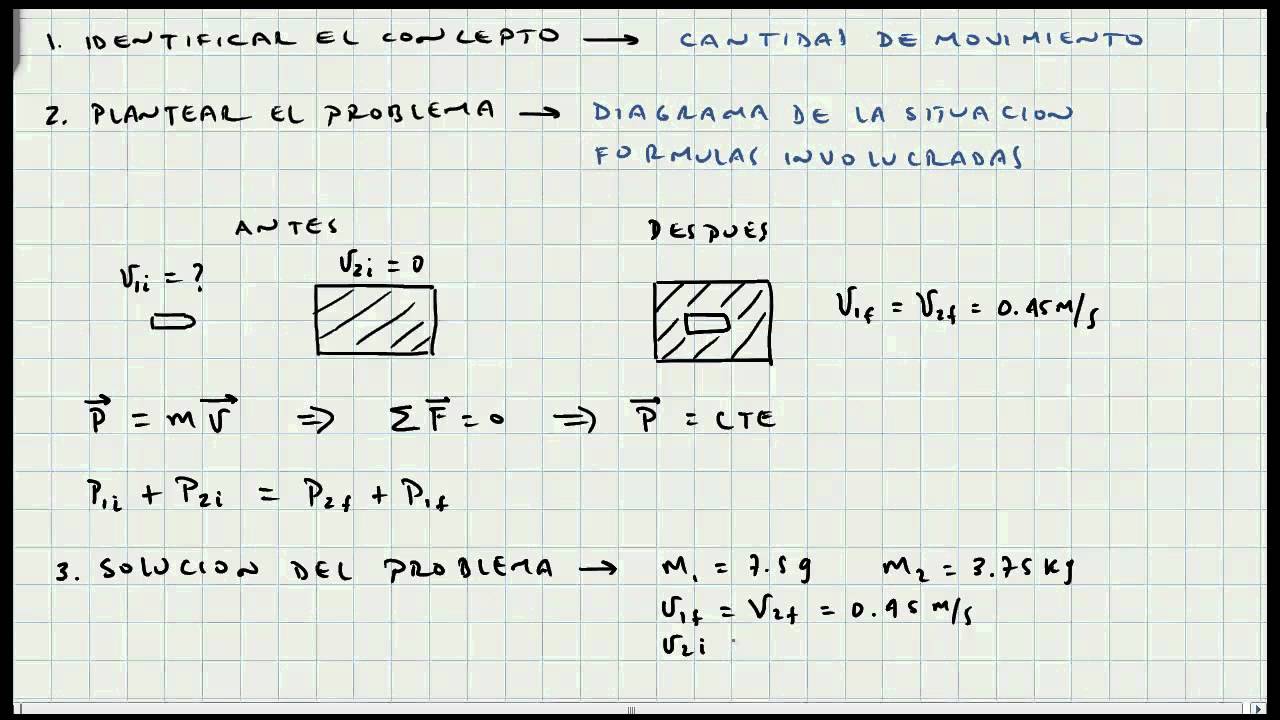 1. IDENTIFICAR EL CONCEPTO → CANTIDAD DE MOVIMIENTO
2. PLANTEAR EL PROBLEMA → DIAGRAMA DE LA SITUACION
FORMULAS INVOLUCRADAS
ANTES
DESPUES
V₁ᵢ = ?
V₂ᵢ = 0
V₁f = V₂f = 0.45 M/s
P⃗ = m V⃗ ⇒ Σ F⃗ = 0 ⇒ P⃗ = CTE
P₁ᵢ + P₂ᵢ = P₂f + P₁f
3. SOLUCION DEL PROBLEMA → M₁ = 7.5 g M₂ = 3.75 Kg
V₁f = V₂f = 0.45 M/s
V₂ᵢ